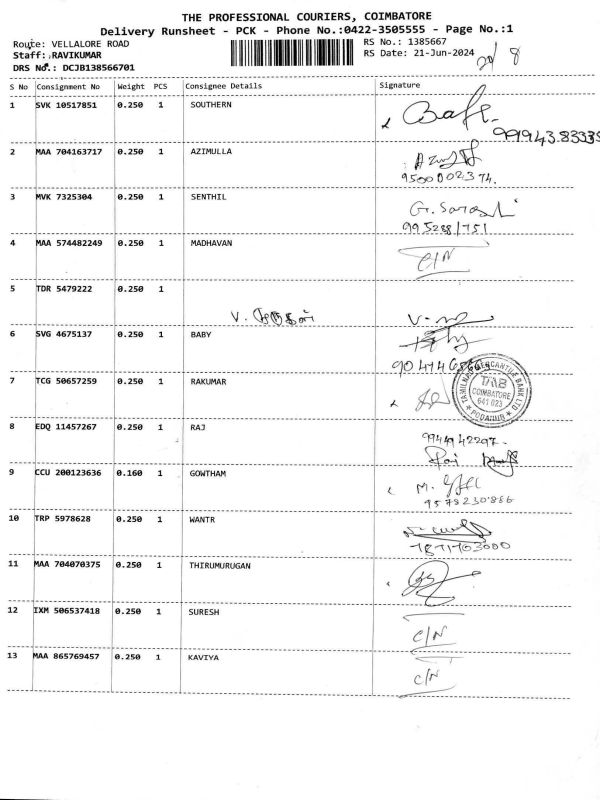 THE PROFESSIONAL COURIERS, COIMBATORE
Delivery Runsheet - PCK - Phone No.:0422-3505555 - Page No.:1
Route: VELLALORE ROAD RS No.: 1385667
Staff: RAVIKUMAR RS Date: 21-Jun-2024
DRS No.: DCJB138566701
S No Consignment No Weight PCS Consignee Details Signature
1 SVK 10517851 0.250 1 SOUTHERN
2 MAA 704163717 0.250 1 AZIMULLA
9500002374.
3 MVK 7325304 0.250 1 SENTHIL
9952881751
4 MAA 574482249 0.250 1 MADHAVAN
C/N
5 TDR 5479222 0.250 1
6 SVG 4675137 0.250 1 BABY
7 TCG 50657259 0.250 1 RAKUMAR
TAMILNAD MERCANTILE BANK LTD
TMB
COIMBATORE
641 023
PODANUR
8 EDQ 11457267 0.250 1 RAJ
9944942297.
9 CCU 200123636 0.160 1 GOWTHAM
9578230886
10 TRP 5978628 0.250 1 WANTR
7871703000
11 MAA 704070375 0.250 1 THIRUMURUGAN
12 IXM 506537418 0.250 1 SURESH
C/N
13 MAA 865769457 0.250 1 KAVIYA
C/N